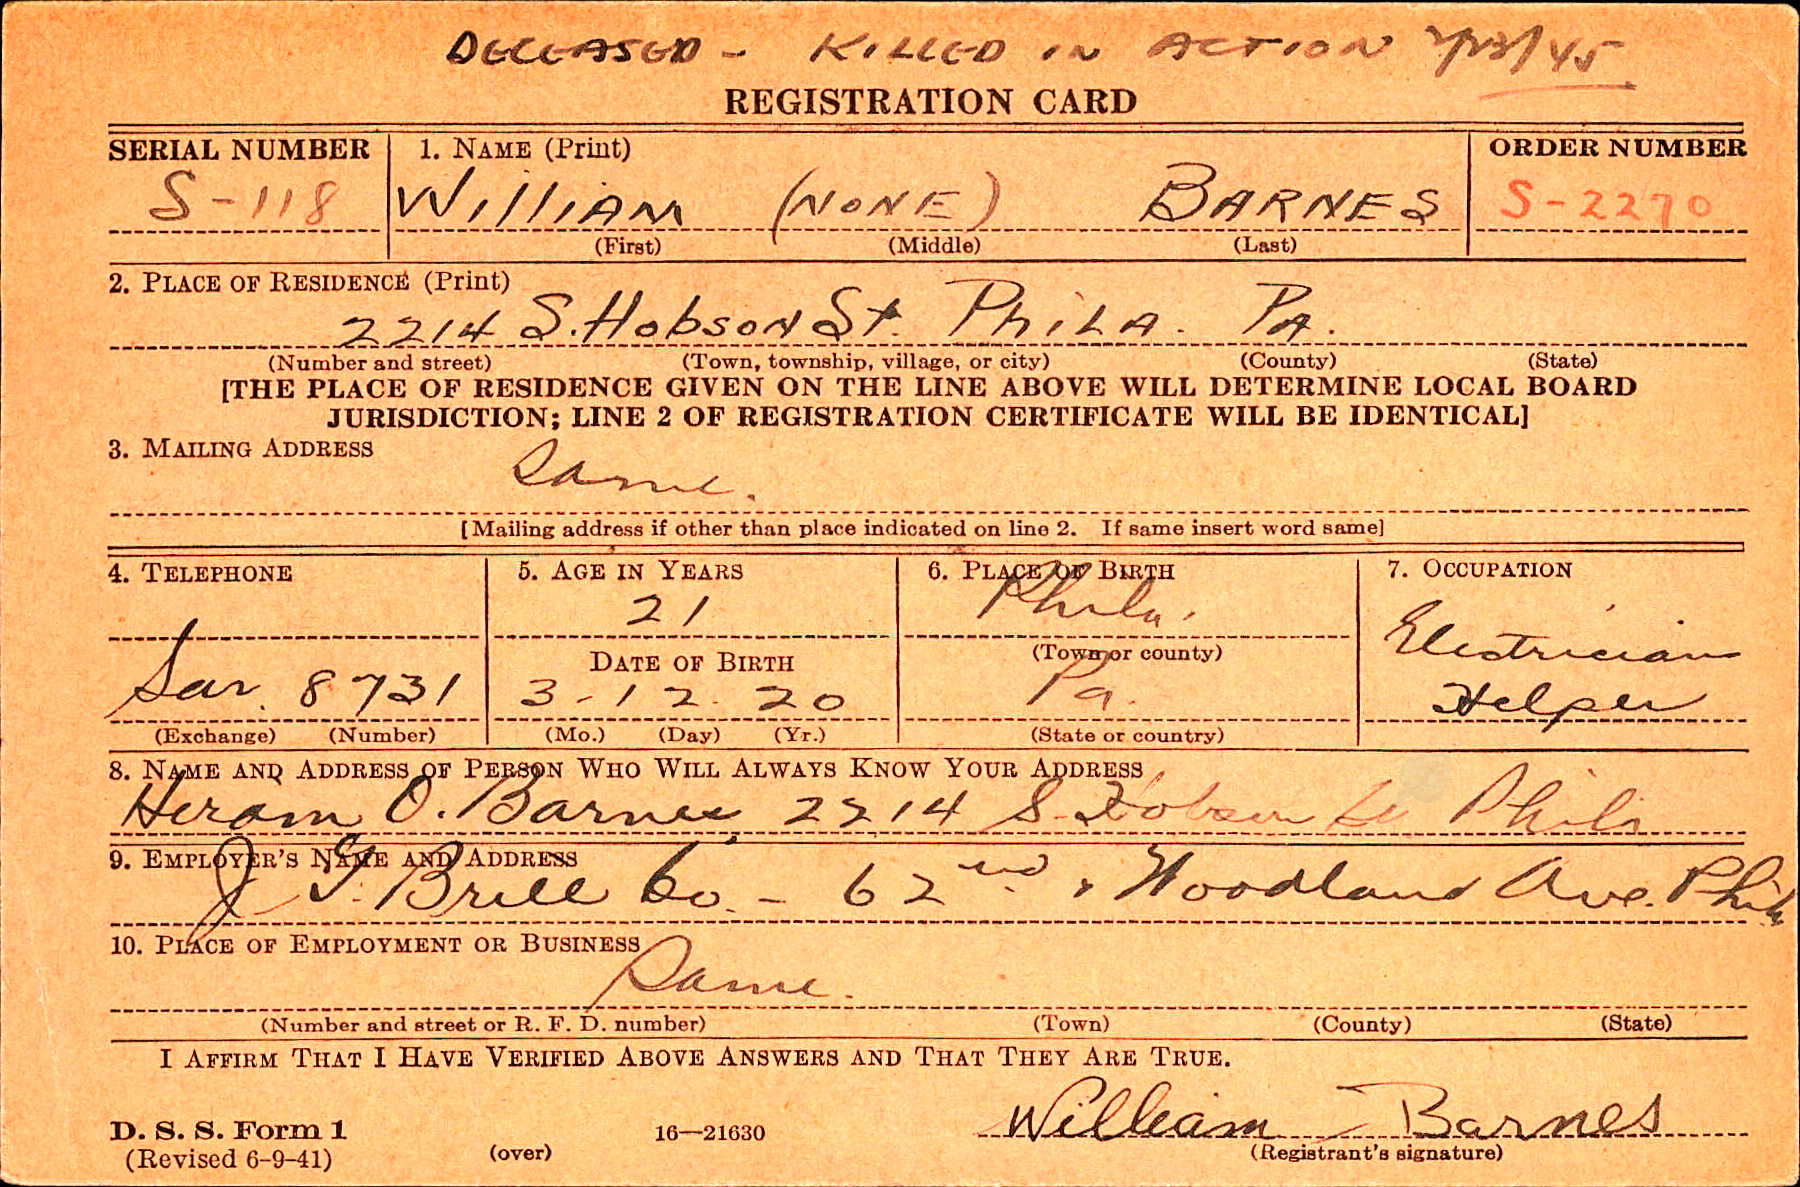 DECEASED - KILLED IN ACTION /45
REGISTRATION CARD
SERIAL NUMBER 1. NAME (Print) ORDER NUMBER
S-118 William (NONE) BARNES S-2270
(First) (Middle) (Last)
2. PLACE OF RESIDENCE (Print)
2214 S. Hobson St. Phila. Pa.
(Number and street) (Town, township, village, or city) (County) (State)
[THE PLACE OF RESIDENCE GIVEN ON THE LINE ABOVE WILL DETERMINE LOCAL BOARD
JURISDICTION; LINE 2 OF REGISTRATION CERTIFICATE WILL BE IDENTICAL]
3. MAILING ADDRESS
Same.
[Mailing address if other than place indicated on line 2. If same insert word same]
4. TELEPHONE 5. AGE IN YEARS 6. PLACE OF BIRTH 7. OCCUPATION
21 Phila.
(Town or county) Electrician
DATE OF BIRTH
Sar. 8731 3-12-20 Pa. Helper
(Exchange) (Number) (Mo.) (Day) (Yr.) (State or country)
8. NAME AND ADDRESS OF PERSON WHO WILL ALWAYS KNOW YOUR ADDRESS
Hiram O. Barnes 2214 S. Hobson St Phila
9. EMPLOYER'S NAME AND ADDRESS
J. G. Brill Co. - 62nd & Woodland Ave. Phila
10. PLACE OF EMPLOYMENT OR BUSINESS
Same.
(Number and street or R. F. D. number) (Town) (County) (State)
I AFFIRM THAT I HAVE VERIFIED ABOVE ANSWERS AND THAT THEY ARE TRUE.
William Barnes
D. S. S. Form 1 16—21630
(Revised 6-9-41) (over) (Registrant's signature)